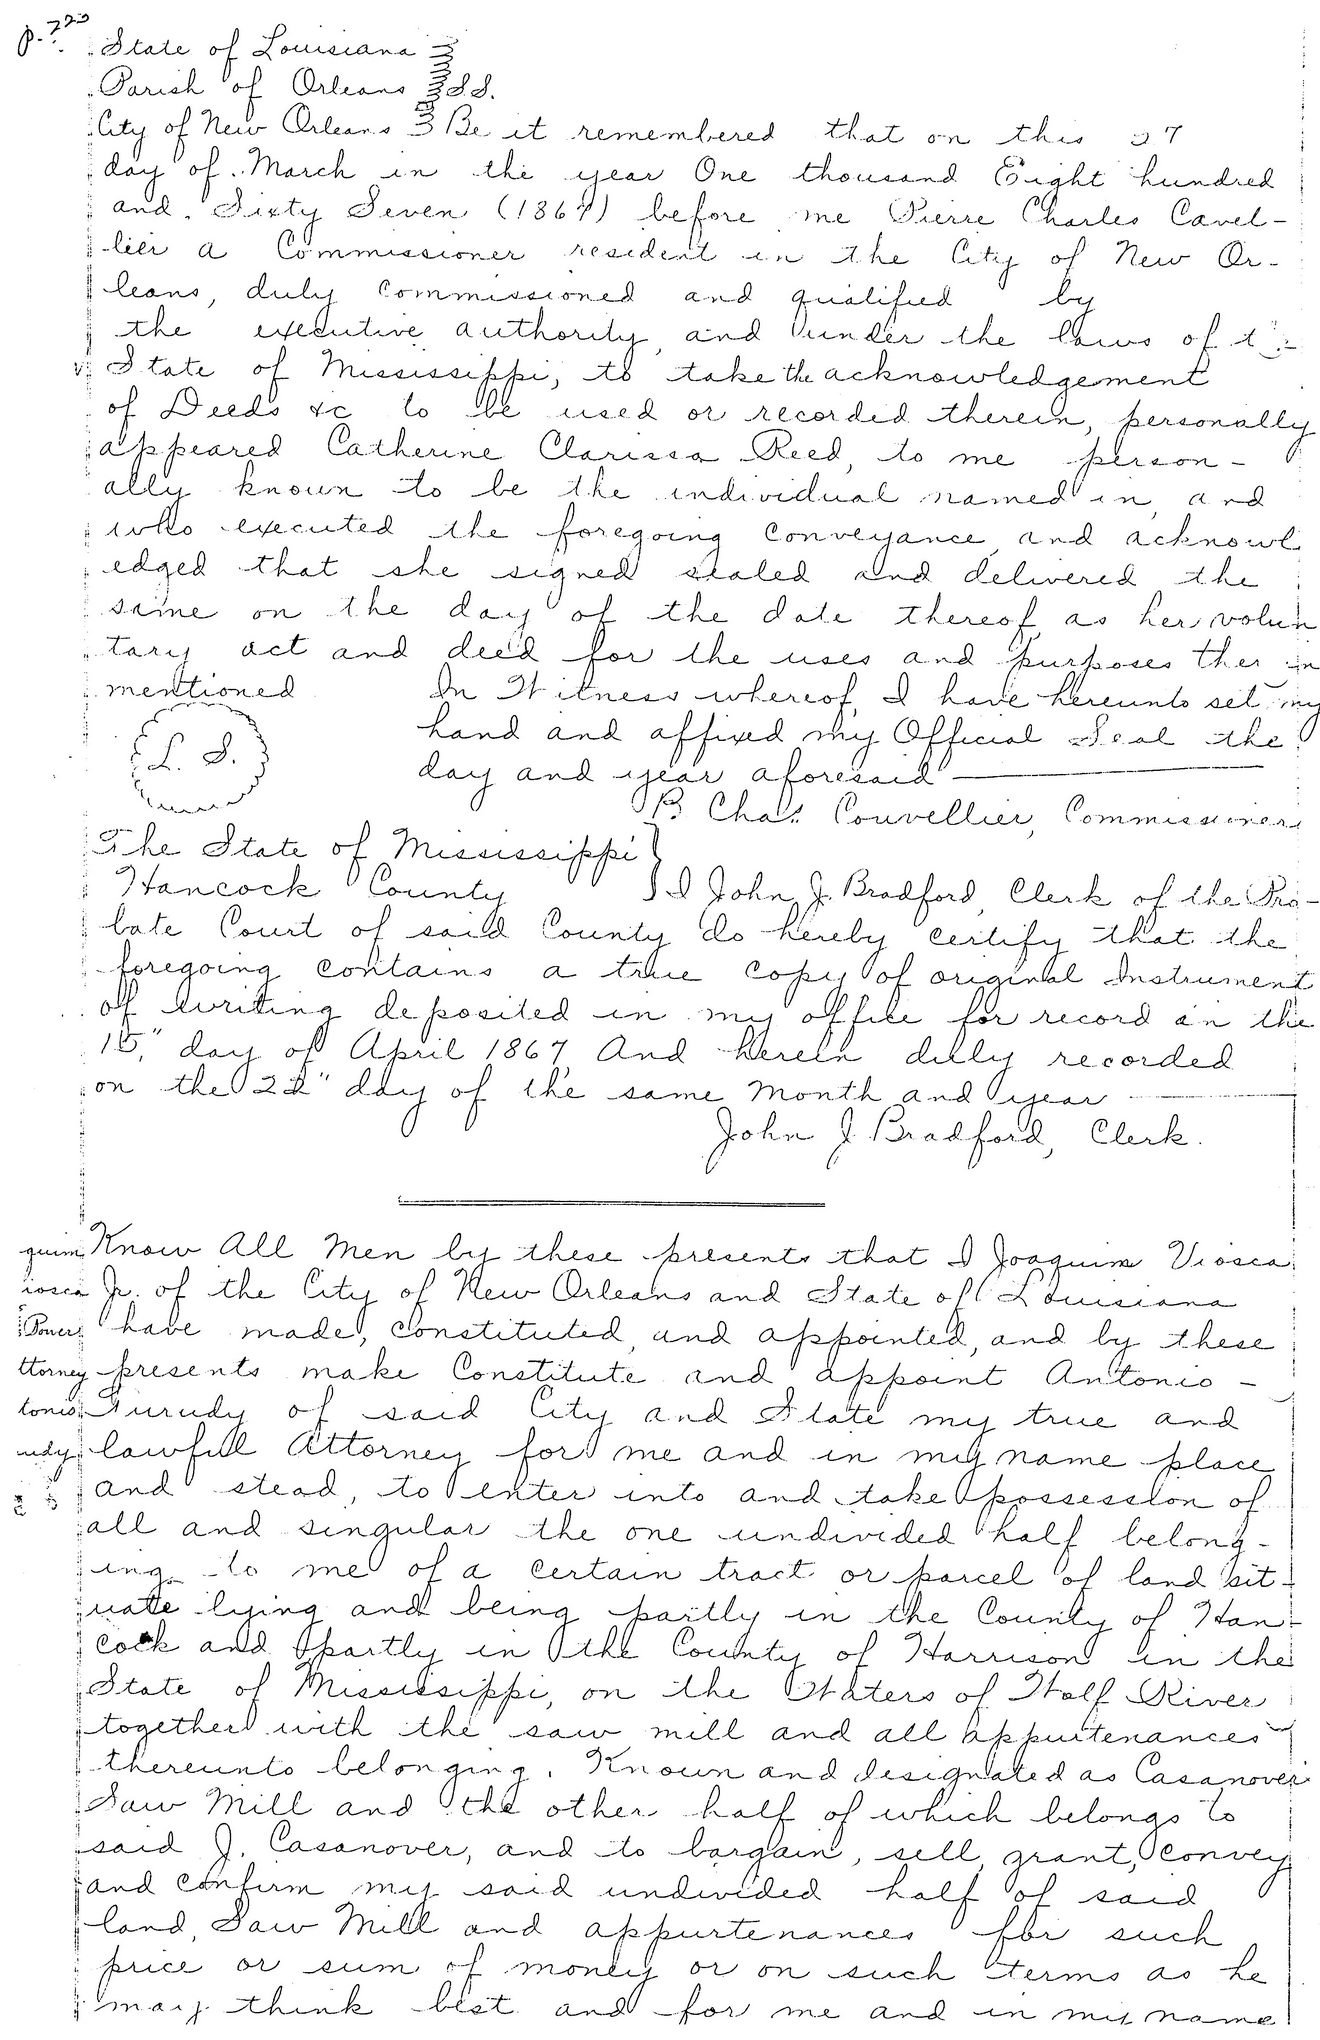 State of Louisiana
Parish of Orleans SS.
City of New Orleans Be it remembered that on this 27
day of March in the year One thousand Eight hundred
and Sixty Seven (1867) before me Pierre Charles Cavel-
lier a Commissioner resident in the City of New Or-
leans, duly commissioned and qualified by
the executive authority, and under the laws of
State of Mississippi, to take the acknowledgement
of Deeds &c to be used or recorded therein, personally
appeared Catherine Clarissa Reed, to me person-
ally known to be the individual named in, and
who executed the foregoing Conveyance and acknowl
edged that she signed sealed and delivered the
same on the day of the date thereof as her volun
tary act and deed for the uses and purposes ther in
mentioned In Witness whereof, I have hereunto set my
hand and affixed my Official Seal the
L. S.
day and year aforesaid
P. Chas. Couvellier, Commissioner
The State of Mississippi
Hancock County I John J. Bradford, Clerk of the Pro-
bate Court of said County do hereby certify that the
foregoing contains a true copy of original Instrument
of writing deposited in my office for record on the
15," day of April 1867, And herein dully recorded
on the 22" day of the same month and year
John J Bradford, Clerk.
quim Know All Men by these presents that I Joaquim Viosca
iosca Jr. of the City of New Orleans and State of Louisiana
Power have made, constituted, and appointed, and by these
ttorney presents make Constitute and appoint Antonio -
tonio Turudy of said City and State my true and
udy lawful Attorney for me and in my name place
and stead, to enter into and take possession of
all and singular the one undivided half belong-
ing to me of a certain tract or parcel of land sit-
uate lying and being partly in the County of Han-
cock and partly in the County of Harrison in the
State of Mississippi, on the Waters of Wolf River
together with the saw mill and all appurtenances
thereunto belonging. Known and designated as Casanover
Saw Mill and the other half of which belongs to
said J. Casanover, and to bargain, sell, grant, convey
and confirm my said undivided half of said
land, Saw Mill and appurtenances for such
price or sum of money or on such terms as he
may think best and for me and in my name